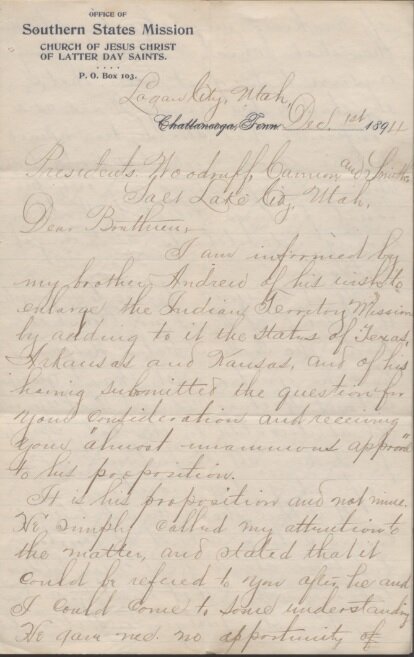 OFFICE OF
Southern States Mission
CHURCH OF JESUS CHRIST
OF LATTER DAY SAINTS.
....
P. O. Box 103.
Logan City, Utah,
Chattanooga, Tenn. Dec. 1st 1891
Presidents Woodruff, Cannon and Smith
Salt Lake City, Utah,
Dear Brethren,
I am informed by
my brother Andrew of his wish to
enlarge the Indian Territory Mission
by adding to it the states of Texas,
Arkansas and Kansas, and of his
having submitted the question for
your consideration and receiving
your "almost unanimous approval"
to his proposition.
It is his proposition and not mine.
He simply called my attention to
the matter, and stated that it
could be refered to you after he and
I could come to some understanding
He gave me no opportunity of